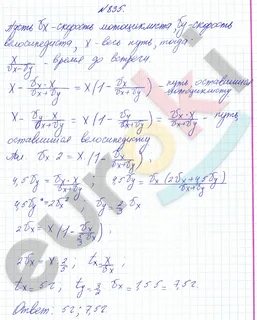 №835.
Пусть Vx - скорость мотоциклиста Vy - скорость
велосипедиста, X - весь путь, тогда
X/(Vx+Vy) - время до встречи.
X - Vx·X/(Vx+Vy) = X(1 - Vx/(Vx+Vy)) - путь оставшийся
мотоциклисту
X - Vy·X/(Vx+Vy) = X(1 - Vy/(Vx+Vy)) = Vx·X/(Vx+Vy) - путь
оставшийся велосипедисту
Vx 2 = X(1 - Vx/(Vx+Vy))
4,5Vy = Vx·X/(Vx+Vy) ; 4,5Vy = Vx(2Vx+4,5Vy)/(Vx+Vy)
4,5Vy² = 2Vx² Vy = 2/3 Vx
2Vx = X(1 -
2Vx = X 2/5 ; tx = X/Vx ;
tx = 5ч ; ty = 3/2 Vx = 1,5·5 = 7,5ч.
Ответ: 5ч; 7,5ч.
euroki